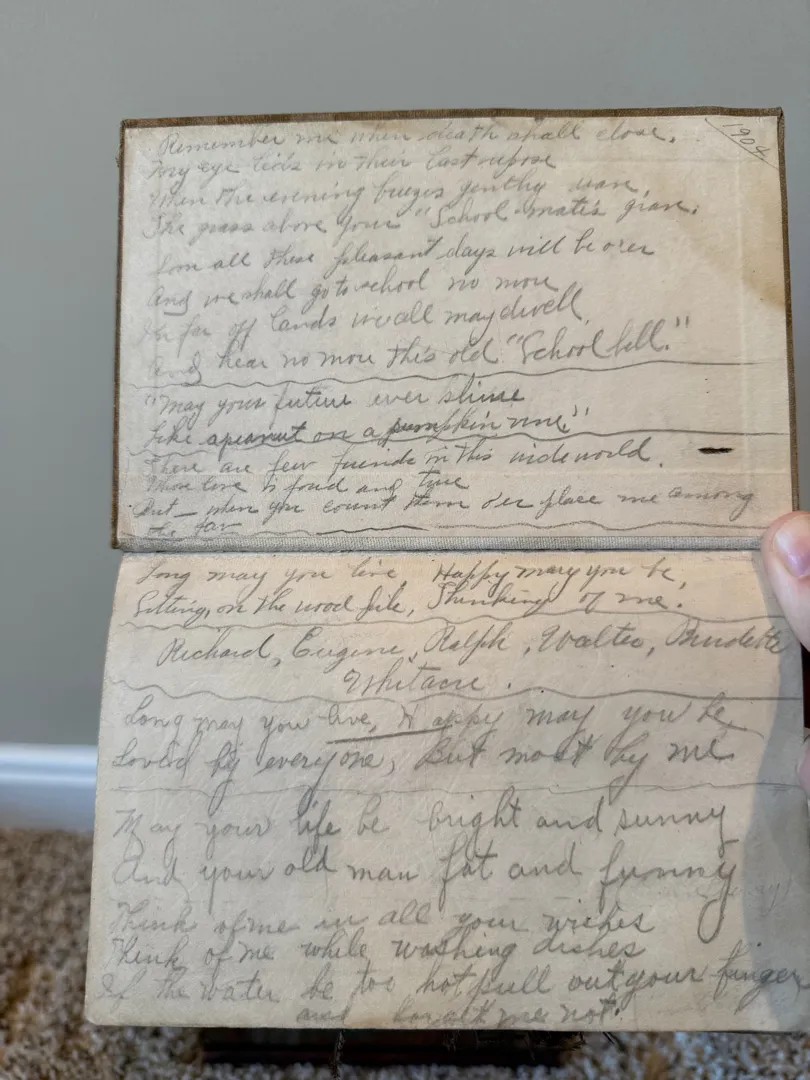 1904
Remember me when death shall close,
my eye lids in their last repose
When the evening breezes genthy wave,
The grass above your "School-mate's grave.
Soon all these pleasant days will be o'er
And we shall go to school no more
In far off lands we all may dwell,
And hear no more this old "School bell."
"May your future ever shine
Like a peanut on a pumpkin vine."
There are few friends in this wide world.
Whose love is fond and true
But - when you count them o'er place me among
the few
Long may you live, Happy may you be,
Sitting, on the wood pile, Thinking of me.
Richard, Eugene, Ralph, Walter, Burdette
Whitacre.
Long may you live, Happy may you be,
Loved by everyone, But most by me
May your life be bright and sunny
And your old man fat and funny
Think of me in all your wishes
Think of me while washing dishes
If the water be too hot pull out your finger
and forget me not.